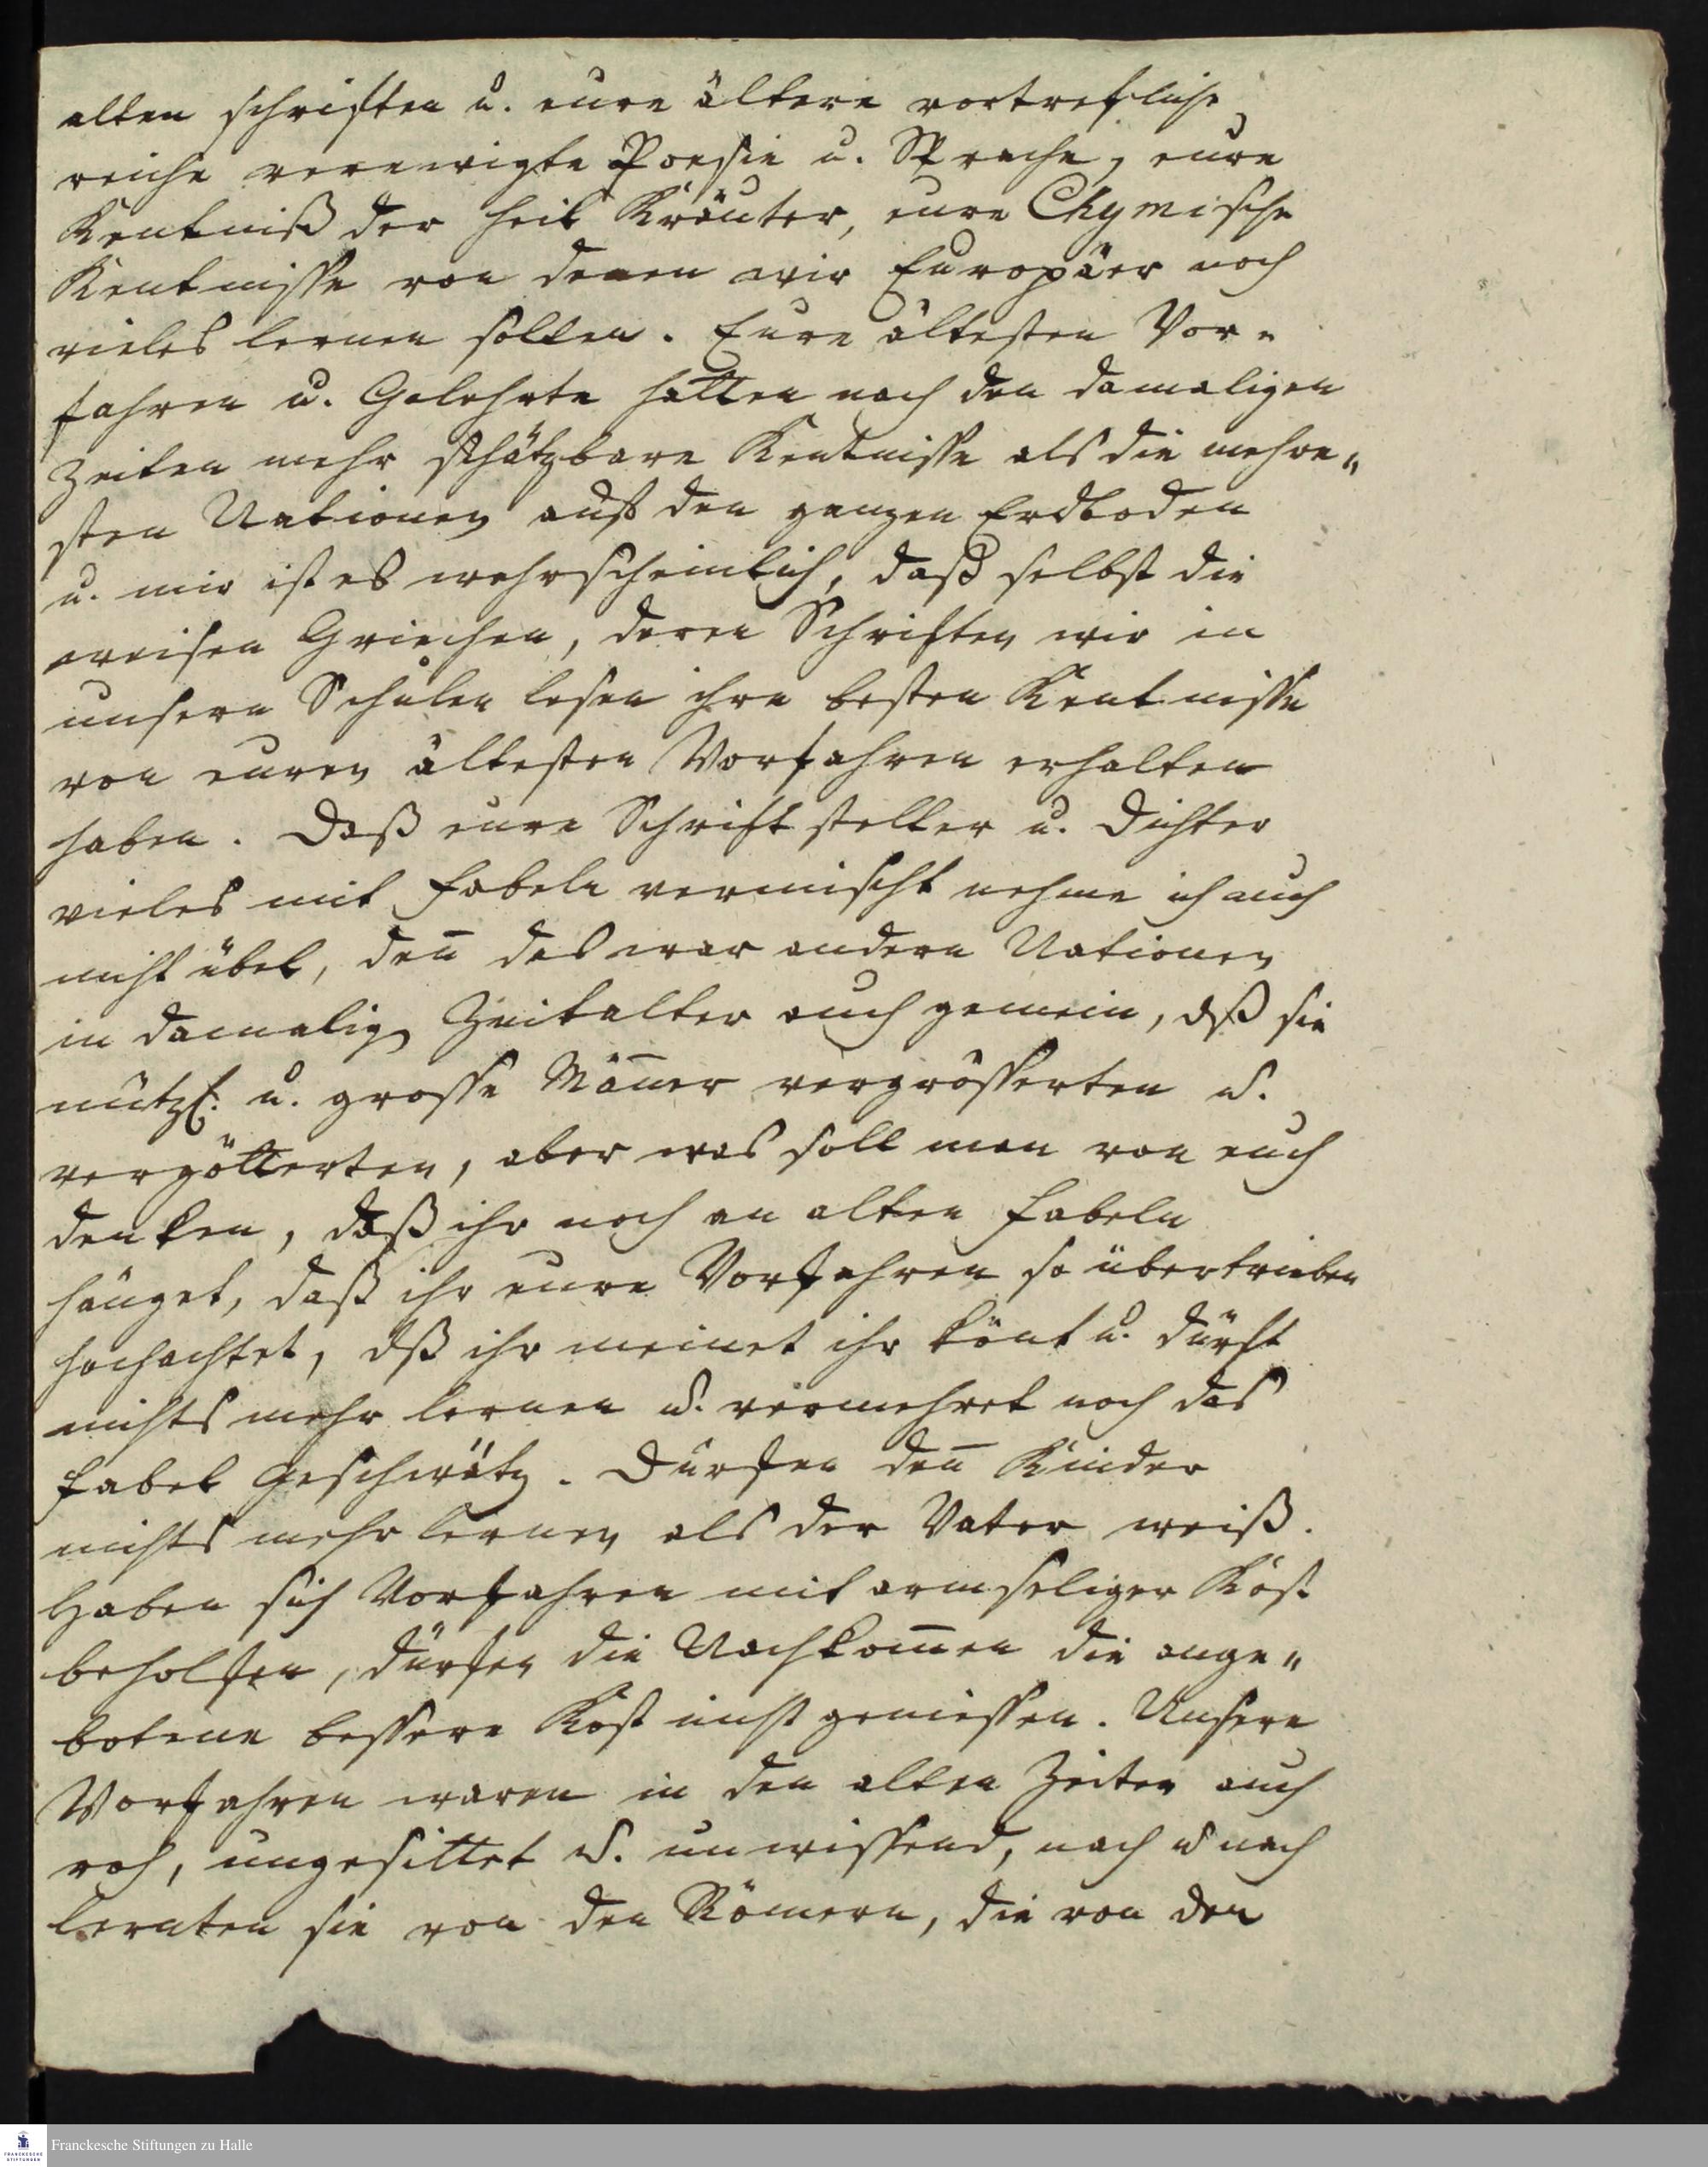 alten schriften u. eure ältere vortrefliche,
reiche verewigte Poesie u. Sprache, eure
Kentniß der heil Kräuter, eure Chymische
Kentnisse von denen wir Europäer noch
vieles lernen sollen. Eure ältesten Vor-
fahren u. Gelehrte hatten nach den damaligen
Zeiten mehr schätzbare Kentnisse als die mehre-
sten Nationen auf den ganzen Erdboden
u. mir ist es wahrscheinlich, daß selbst die
weisen Griechen, deren Schriften wir in
unsern Schulen lesen ihre besten Kentnisse
von euren ältesten Vorfahren erhalten
haben. Daß eure Schriftsteller u. Dichter
vieles mit Fabeln vermischt nehme ich auch
nicht übel, deñ das war andern Nationen
in damalig Zeitalter auch gemein, dß sie
nützl. u. grosse Mäñer vergrösserten u.
vergötterten, aber was soll man von euch
denken, daß ihr noch an alten Fabeln
hänget, daß ihr eure Vorfahren so übertrieben
hochachtet, dß ihr meinet ihr köñt u. dürft
nichts mehr lernen u. vermehret noch das
Fabel Geschwätz. Dürfen deñ Kinder
nichts mehr lernen als der Vater weiß.
Haben sich Vorfahren mit armseliger Kost
beholfen, dürfen die Nachkom̄en die ange-
botene bessere Kost nicht geniessen. Unsere
Vorfahren waren in den alten Zeiten auch
roh, ungesittet u. unwissend, nach u nach
lernten sie von den Römern, die von den
Franckesche Stiftungen zu Halle
FRANCKESCHE
STIFTUNGEN